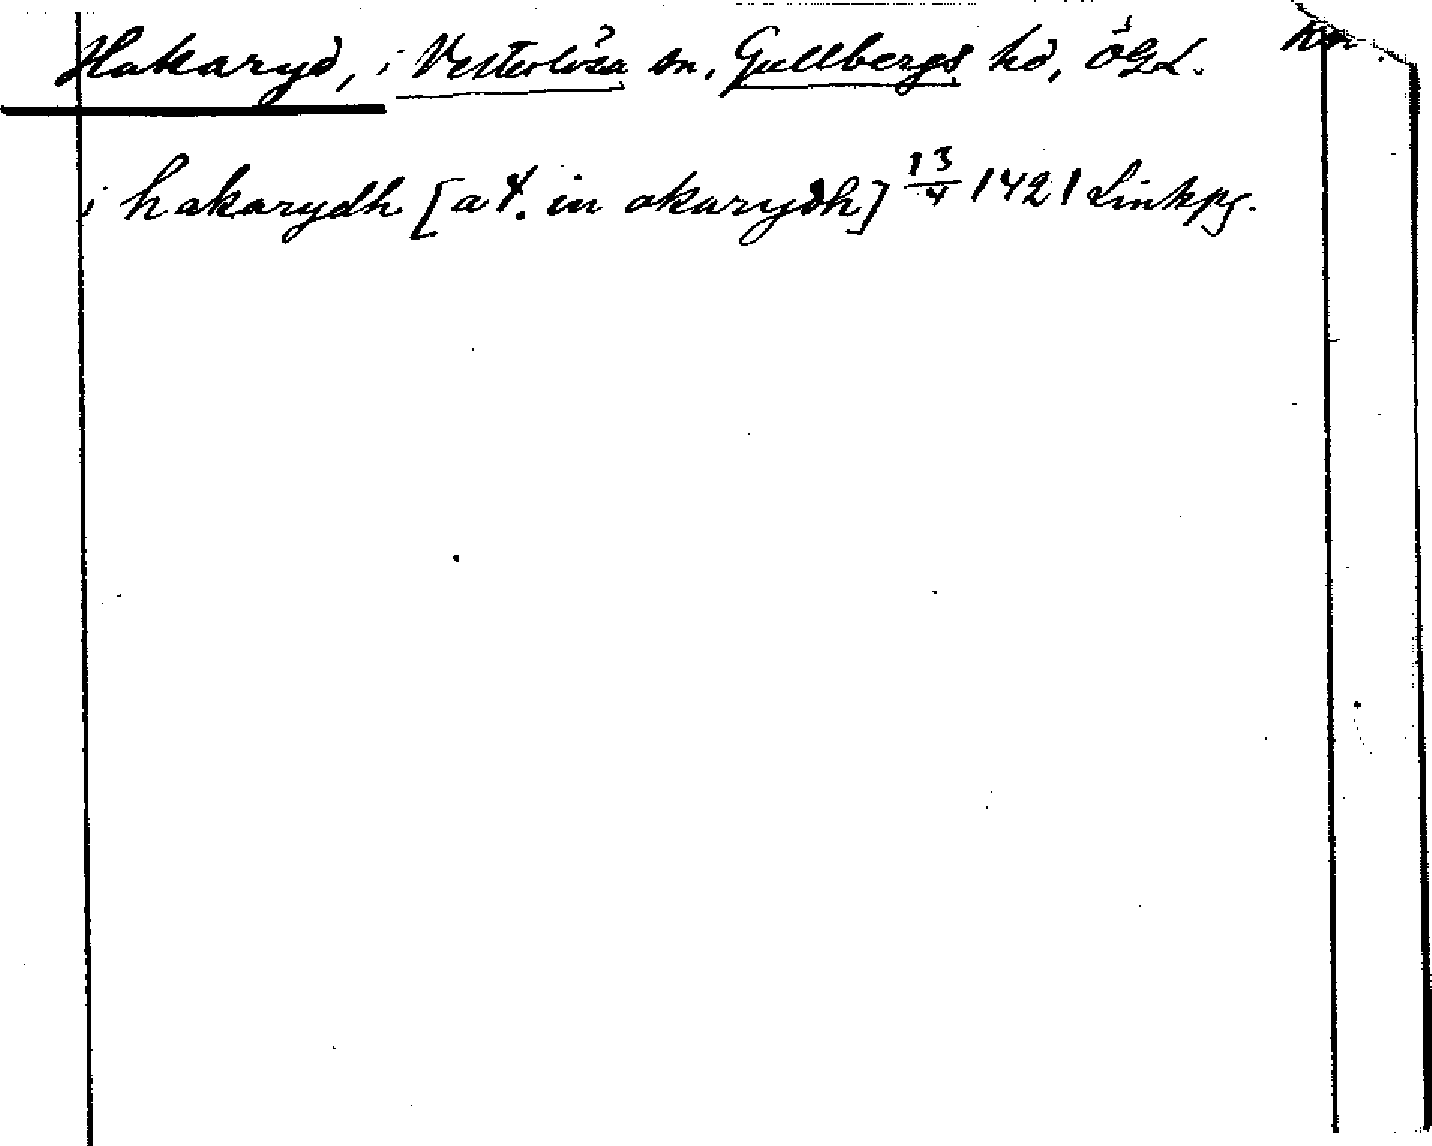 Hakaryd, i Vesterlösa sn, Gullbergs hd, ÖGL. Kn
i hakarydh [at. in akarydh] 13/4 1421 Linkpg.